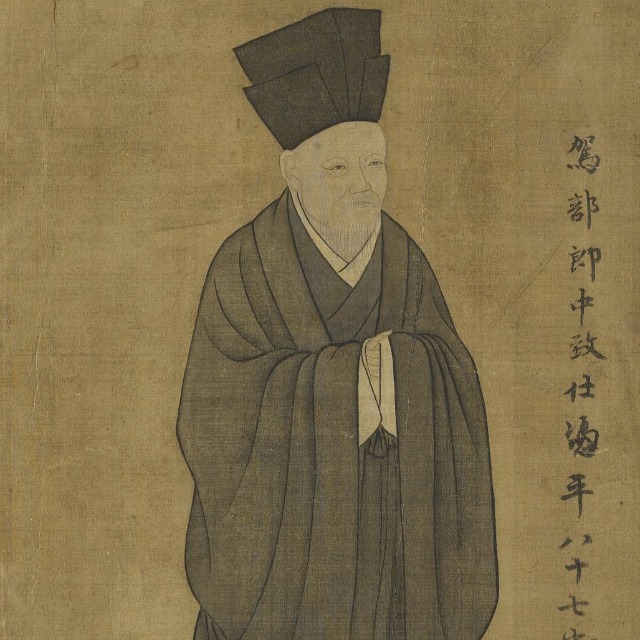 駕部郎中致仕馮平八十七